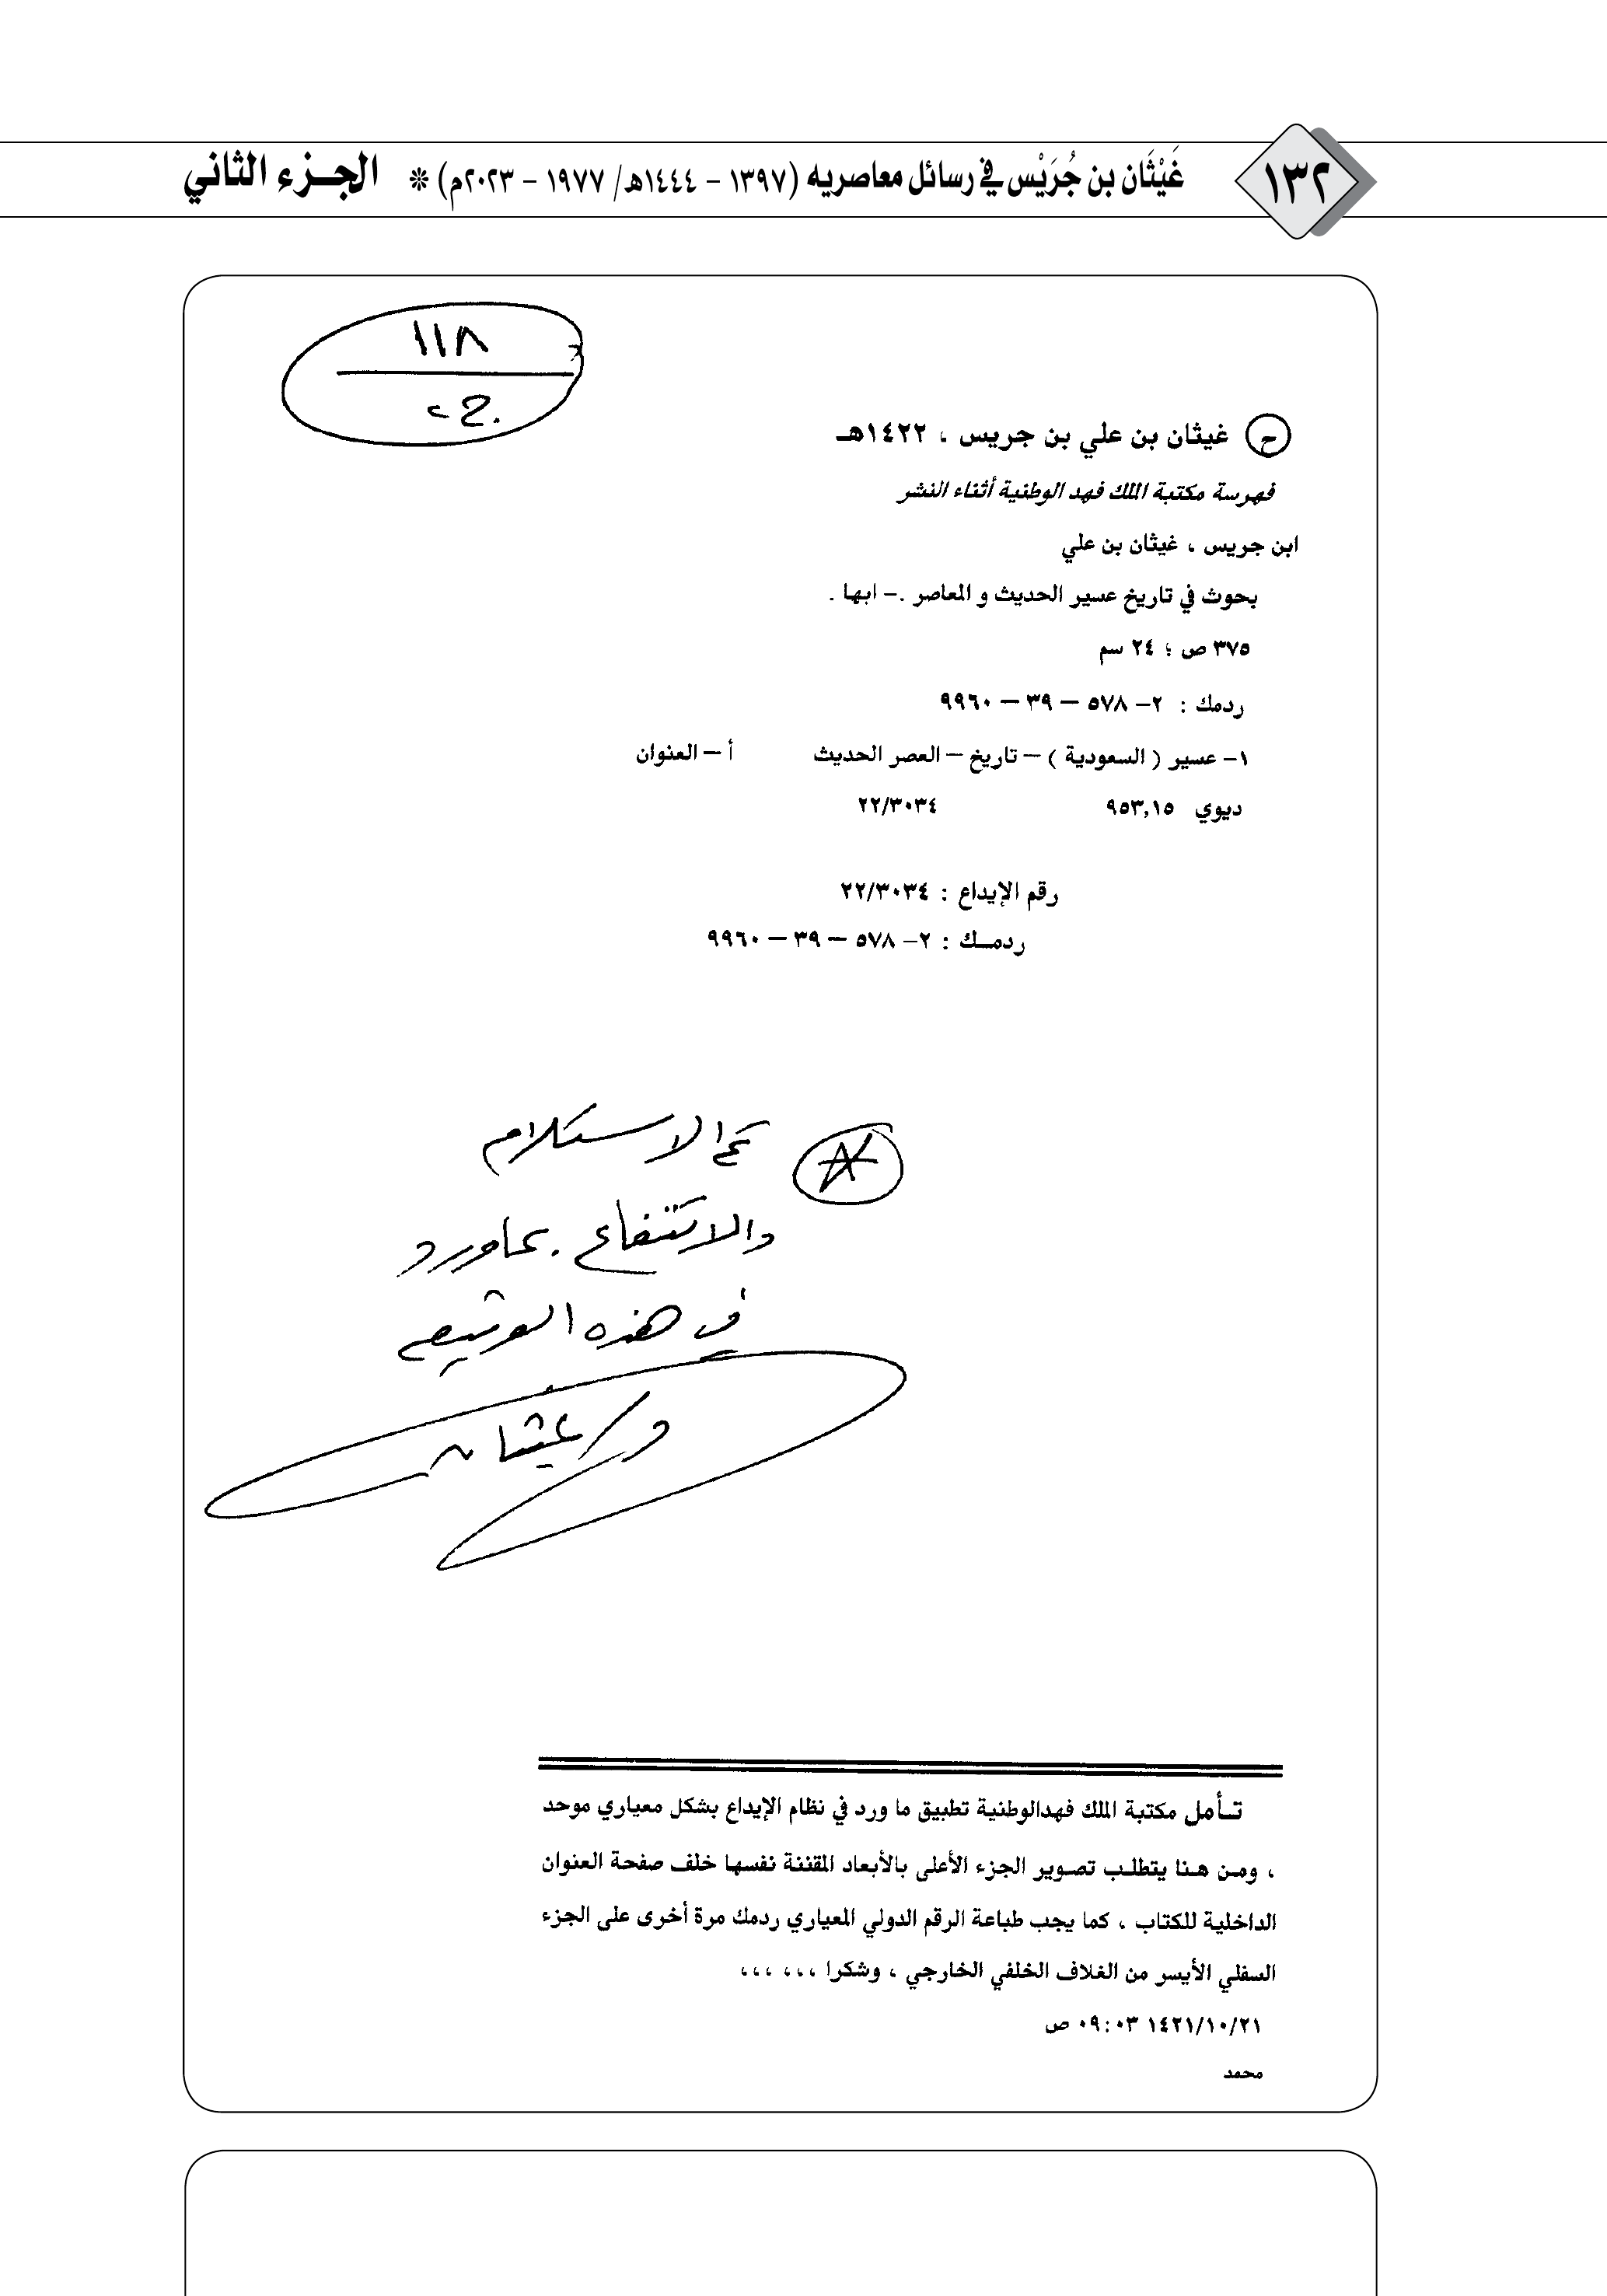 ١٣٢ غَيْثَان بن جُرَيْس في رسائل معاصريه (١٣٩٧ - ١٤٤٤هـ/ ١٩٧٧ - ٢٠٢٣م) * الجـزء الثاني
١١٨
ح غيثان بن علي بن جريس ، ١٤٢٢هـ
فهرسة مكتبة الملك فهد الوطنية أثناء النشر
ابن جريس ، غيثان بن علي
بحوث في تاريخ عسير الحديث و المعاصر .– ابها .
٣٧٥ ص ؛ ٢٤ سم
ردمك : ٢- ٥٧٨ – ٣٩ – ٩٩٦٠
١- عسير ( السعودية ) – تاريخ – العصر الحديث أ – العنوان
ديوي ٩٥٣,١٥ ٢٢/٣٠٣٤
رقم الإيداع : ٢٢/٣٠٣٤
ردمـك : ٢- ٥٧٨ – ٣٩ – ٩٩٦٠
تم الاستلام
والانتفاع بما ورد
في هذه الوثيقة
د/ غيثان
تـأمل مكتبة الملك فهدالوطنية تطبيق ما ورد في نظام الإيداع بشكل معياري موحد
، ومـن هـنا يتطلـب تصـوير الجزء الأعلى بالأبعاد المقننة نفسها خلف صفحة العنوان
الداخلية للكتاب ، كما يجب طباعة الرقم الدولي المعياري ردمك مرة أخرى على الجزء
السفلي الأيسر من الغلاف الخلفي الخارجي ، وشكرا ،،، ،،،
١٤٢١/١٠/٢١ ٠٩:٠٣ ص
محمد